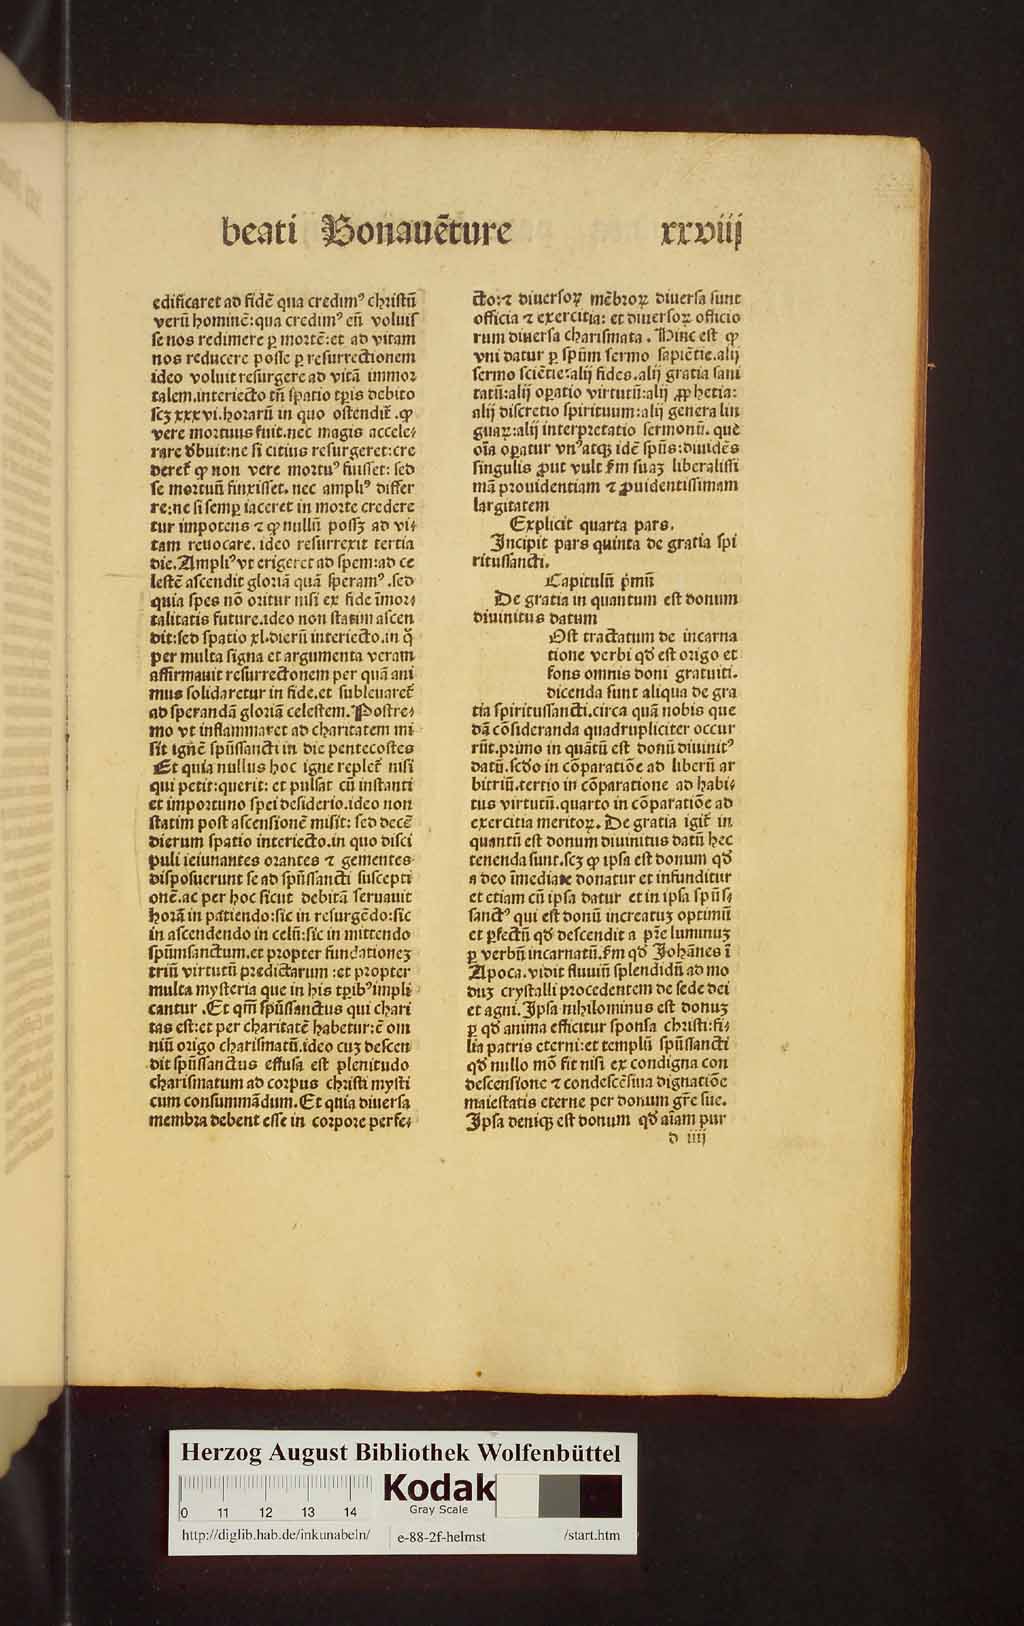 beati Bonauēture xxviij
edificaret ad fidē qua credimꝰ christū
verū hominē:qua credimꝰ eū voluis
se nos redimere ꝑ mortē:et ad vitam
nos reducere posse ꝑ resurrectionem
ideo voluit resurgere ad vitā immor
talem.interiecto tn̄ spatio tp̄is debito
scꝫ xxxvi.horarū in quo ostendit̄ .ꝙ
vere mortuus fuit.nec magis accele⸗
rare dbuit:ne si citius resurgeret:cre
deret̄ ꝙ non vere mortuꝰ fuisset: sed
se mortuū finxisset. nec ampliꝰ differ
re:ne si semꝑ iaceret in morte credere
tur impotens ⁊ ꝙ nullū possꝫ ad vi⸗
tam reuocare. ideo resurrexit tertia
die.Ampliꝰ vt erigeret ad spem:ad ce
lestē ascendit gloriā quā speramꝰ .sed
quia spes nō oritur nisi ex fide īmor⸗
talitatis future.ideo non statim ascen
dit:sed spatio xl.dierū interiecto.in q̄
per multa signa et argumenta veram
affirmauit resurrectonem per quā ani
mus solidaretur in fide.et subleuaret̄
ad sperandā gloriā celestem.Postre⸗
mo vt inflammaret ad charitatem mi
sit ignē spūssancti in die pentecostes
Et quia nullus hoc igne replet̄ nisi
qui petit:querit: et pulsat cū instanti
et importuno spei desiderio.ideo non
statim post ascensionē misit: sed decē
dierum spatio interiecto.in quo disci
puli ieiunantes orantes ⁊ gementes
disposuerunt se ad spūssancti suscepti
onē.ac per hoc sicut debitā seruauit
horā in patiendo:sic in resurgēdo:sic
in ascendendo in celū:sic in mittendo
spūmsanctum.et propter fundationeꝫ
triū virtutū predictarum :et propter
multa mysteria que in his tp̄ibꝰ impli
cantur .Et qm̄ spūssanctus qui chari
tas est:et per charitatē habetur:ē om
niū origo charismatū.ideo cuꝫ descen
dit spūssanctus effusa est plenitudo
charismatum ad corpus christi mysti
cum consummādum.Et quia diuersa
membra debent esse in corpore perfe⸗
cto:⁊ diuersoꝝ mēbroꝝ diuersa sunt
officia ⁊ exercitia: et diuersoꝝ officio
rum diuersa charismata . Hinc est ꝙ
vni datur ꝑ spūm sermo sapiētie.alij
sermo sciētie:alij fides.alij gratia sani
tatū:alij oꝑatio virtutū:alij ꝓphetia:
alij discretio spirituum:alij genera lin
guaꝝ:alij interpretatio sermonū. que
oīa oꝑatur vnꝰatqꝫ idē spūs:diuidēs
singulis ꝓut vult fm̄ suaꝫ liberalissi
mā prouidentiam ⁊ ꝓuidentissimam
largitatem
Explicit quarta pars.
Incipit pars quinta de gratia spi
ritussancti.
Capitulū pͥmū
De gratia in quantum est donum
diuinitus datum
Ost tractatum de incarna
tione verbi qd̄ est origo et
fons omnis doni gratuiti.
dicenda sunt aliqua de gra
tia spiritussancti.circa quā nobis que
dā cōsideranda quadrupliciter occur
rūt.primo in quātū est donū diuinitꝰ
datū.scd̄o in cōparatiōe ad liberū ar
bitriū.tertio in cōparatione ad habi⸗
tus virtutū.quarto in cōparatiōe ad
exercitia meritoꝝ. De gratia igit̄ in
quantū est donum diuinitus datū hec
tenenda sunt.scꝫ ꝙ ipsa est donum qd̄
a deo īmediate donatur et infunditur
et etiam cū ipsa datur et in ipsa spūs⸗
sanctꝰ qui est donū increatuꝫ optimū
et ꝑfectū qd̄ descendit a pr̄e luminuꝫ
ꝑ verbū incarnatū.fm̄ qd̄ Johānes ī
Apoca.vidit fluuiū splendidū ad mo
duꝫ crystalli procedentem de sede dei
et agni. Ipsa nihilominus est donuꝫ
ꝑ qd̄ anima efficitur sponsa christi:fi⸗
lia patris eterni:et templū spūssancti
qd̄ nullo mō fit nisi ex condigna con
descensione ⁊ condescēsiua dignatiōe
maiestatis eterne per donum gr̄e sue.
Ipsa deniqꝫ est donum qd̄ aīam pur
d iiij
Herzog August Bibliothek Wolfenbüttel
0 11 12 13 14
Kodak
Gray Scale
http://diglib.hab.de/inkunabeln/ e-88-2f-helmst /start.htm